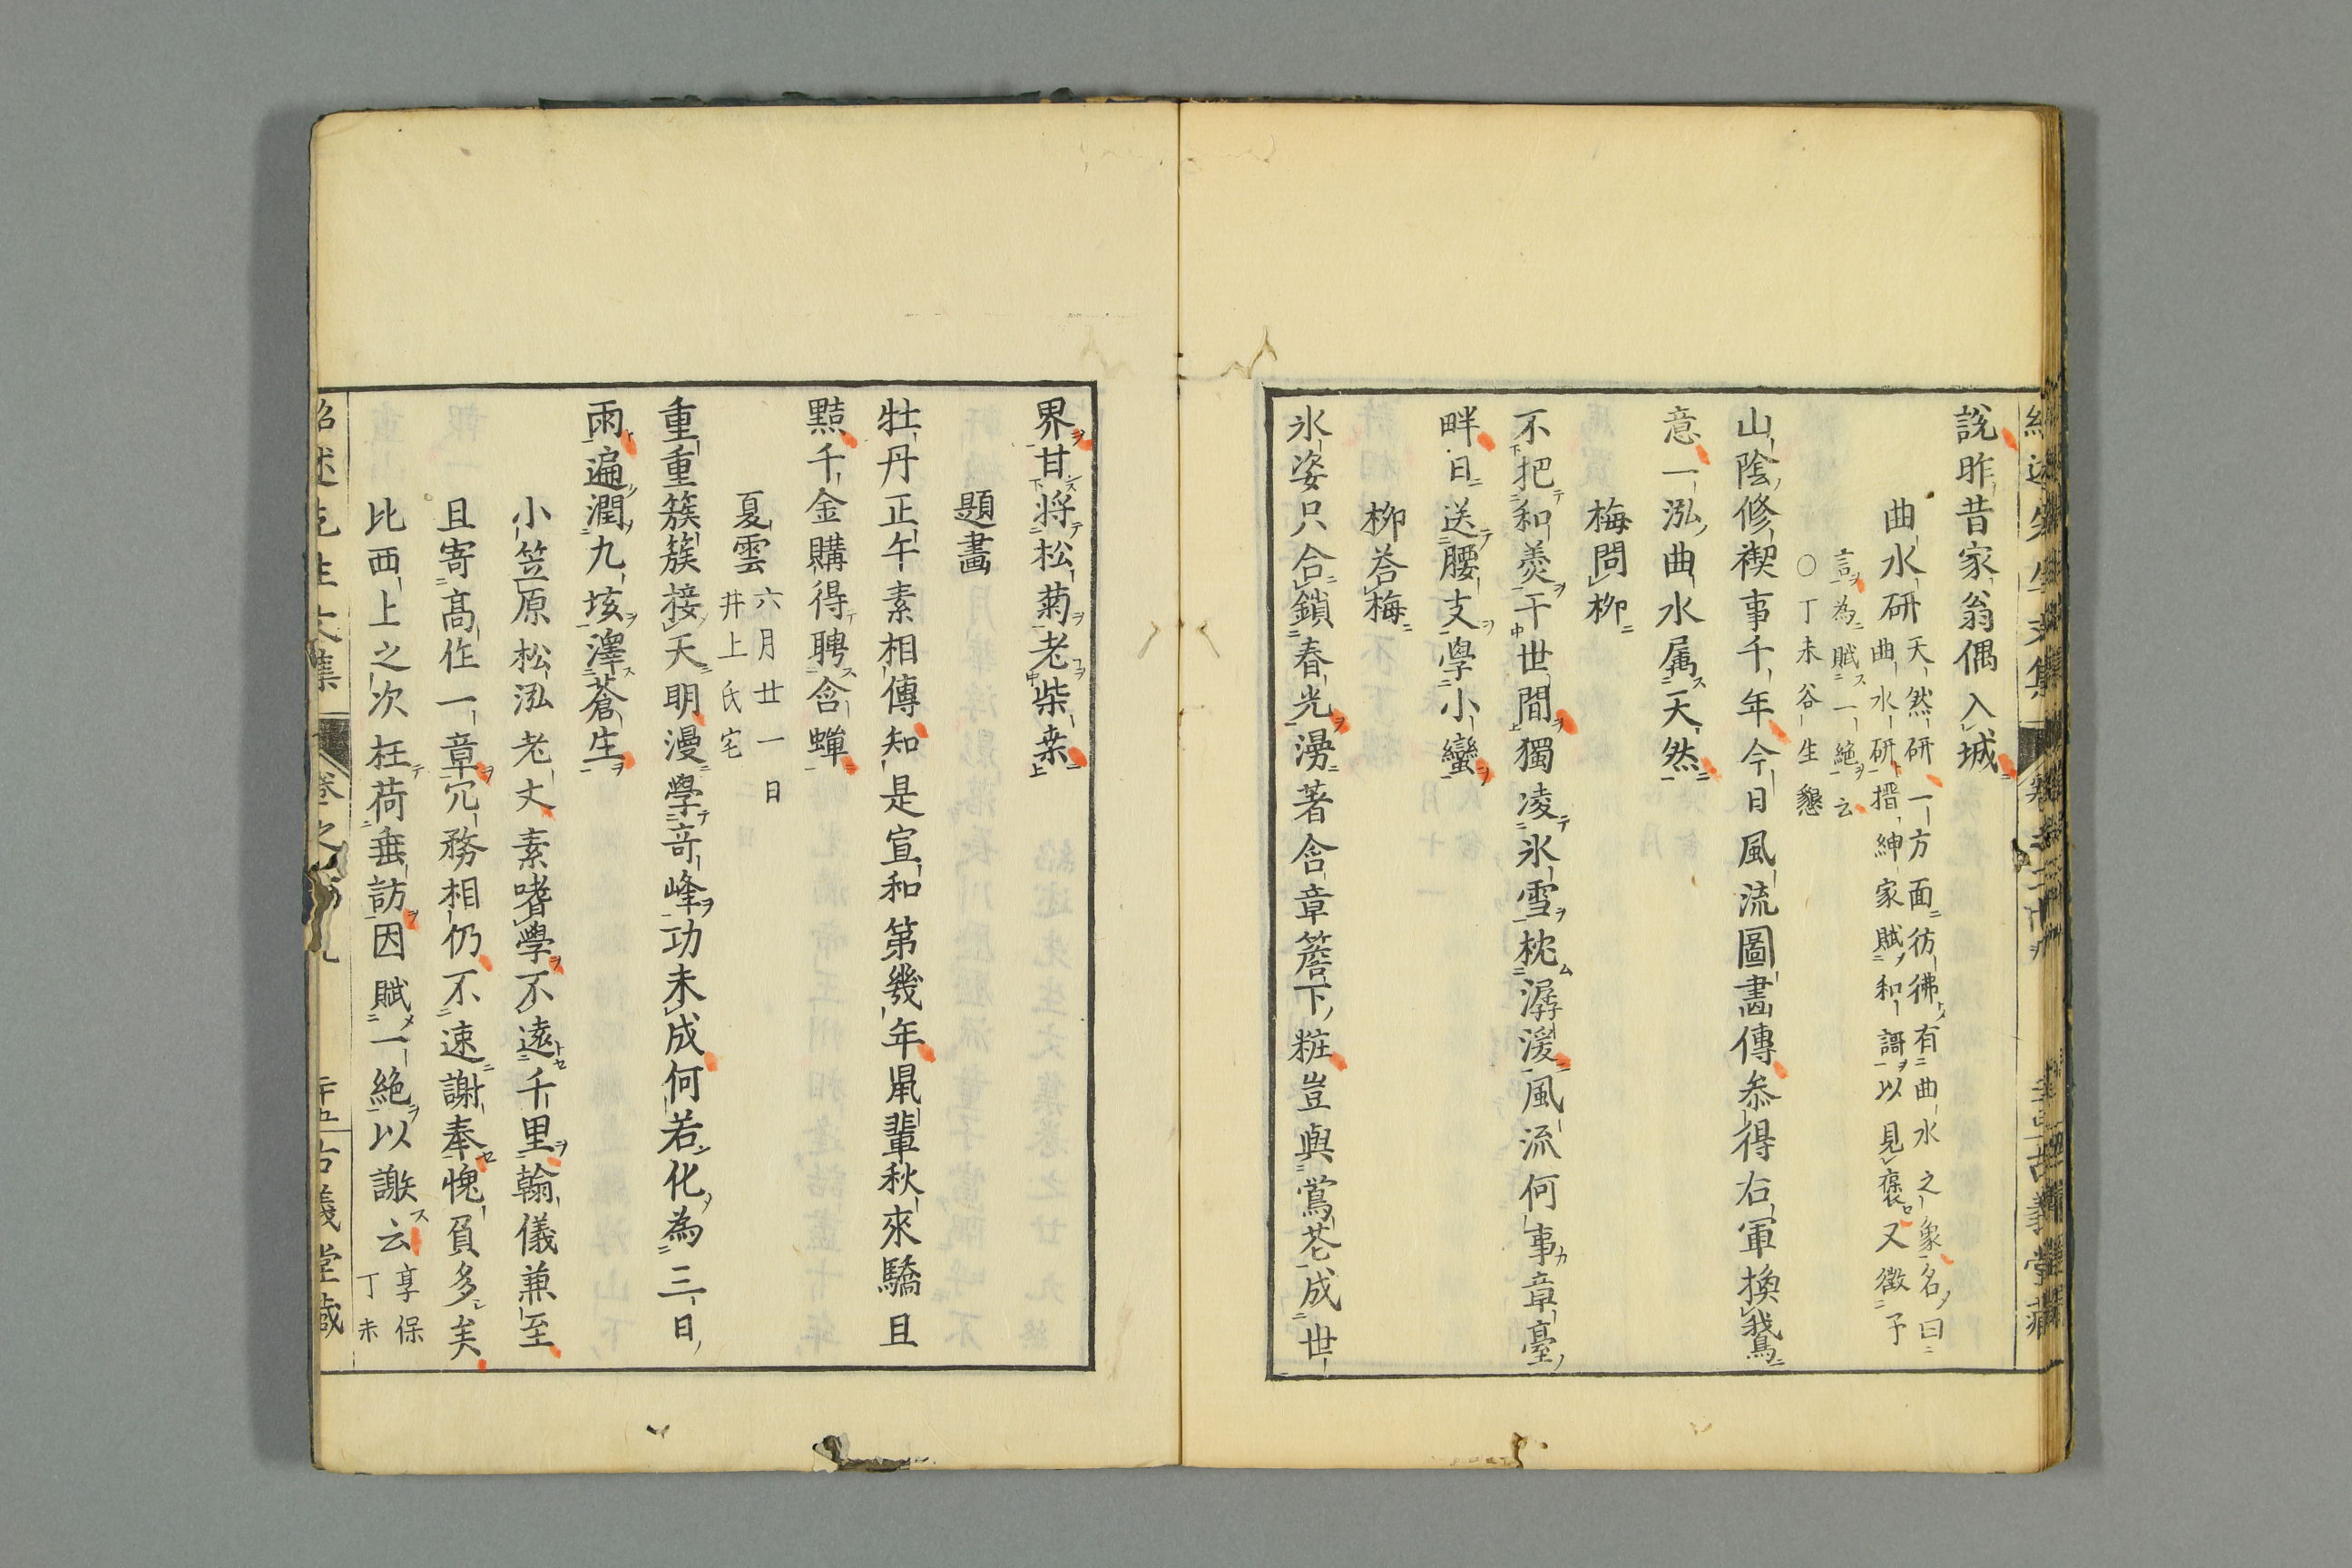 說昨昔家翁偶入城
曲水硏
天然硏一方面彷彿有曲水之象名曰
曲水硏搢紳家賦和謌以見褒又徵予
言為賦一絶云
○丁未谷生懇
山陰修禊事千年今日風流圖畵傳叅得右軍換鵞
意一泓曲水属天然
梅問柳
不把和羹干世間獨凌氷雪枕潺湲風流何事章臺
畔日送腰支學小蠻
柳荅梅
氷姿只合鎖春光漫著含章簷下粧豈與鶯花成世
界甘将松菊老柴桒
題畫
牡丹正午素相傳知是宣和第幾年鼠輩秋來驕且
㸃千金購得聘含蟬
夏雲
六月廿一日
井上氏宅
重重簇簇接天明漫學竒峰功未成何若化為三日
雨遍潤九垓澤蒼生
小笠原松泓老丈素嗜學不遠千里翰儀兼至
且寄高作一章冗務相仍不速謝奉愧負多矣
比西上之次枉荷垂訪因賦一絶以謝云
享保
丁未
紹述先生文集 卷之 九 二十五 古義堂藏